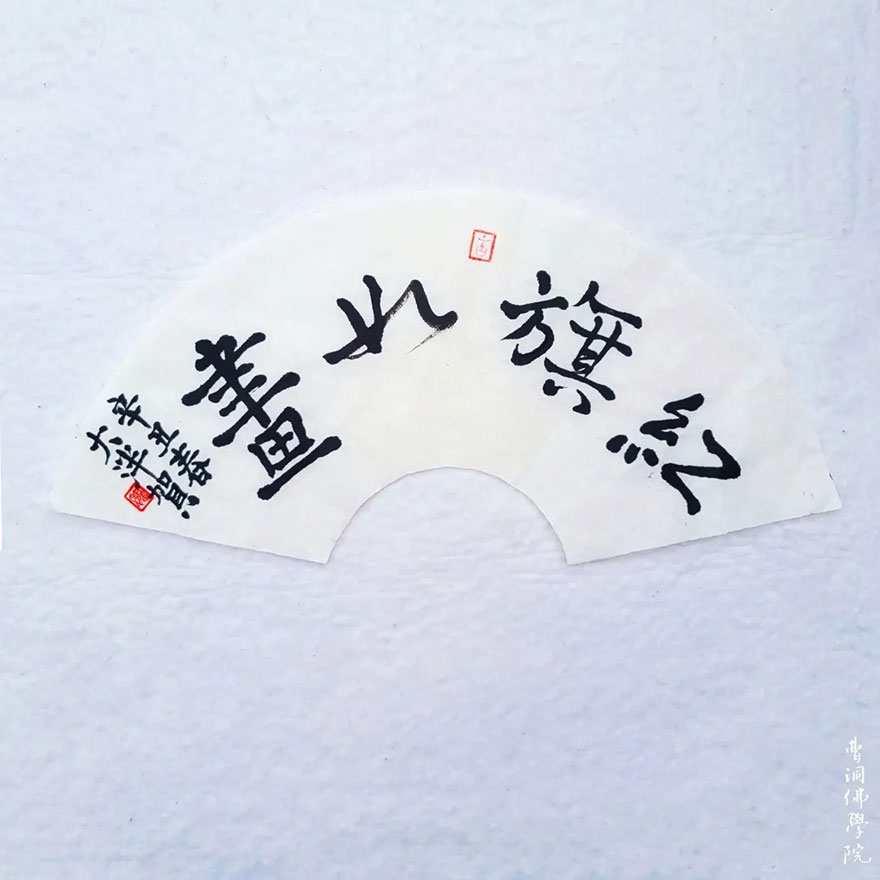 紅旗如畫
辛丑春
大洋賀
曹洞佛學院